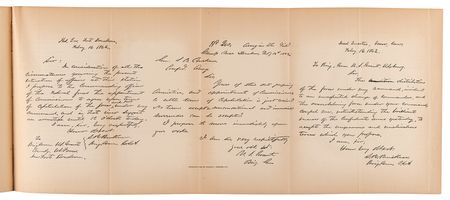 Hd. Qrs. Fort Donelson,
Feby. 16, 1862.
Sir:
In consideration of all the
circumstances governing the present
situation of affairs at this station
I propose to the Commanding officer
of the Federal forces the appointment
of Commissioners to agree upon terms
of capitulation of the forces
command, and in that view suggest
an armistice until 12 o'clock today.
I am, sir, very respectfully,
S. B. Buckner
Brig. Gen. C.S.A.
To
Brigadier Genl. U.S. Grant
Comdg. U.S. Forces
near Fort Donelson
Hd. Qrs. Army in the Field
Camp near Donelson, Feby 16th 1862
Gen. S. B. Buckner
Confed. Army
Sir,
Yours of this date proposing
Armistice, and appointment of Commissioners
to settle terms of Capitulation is just received.
No terms except unconditional and immediate
surrender can be accepted.
I propose to move immediately upon
your works.
I am Sir, very respectfully,
your obt. svt.
U. S. Grant
Brig. Gen.
Feby. 16, 1862.
To Brig. Gen. U. S. Grant, U.S. Army
Sir:
The distribution
of the forces under my command, incident
to an unexpected change of commanders and
the overwhelming force under your command,
compel me, notwithstanding the brilliant
success of the Confederate arms yesterday, to
accept the ungenerous and unchivalrous
terms which you propose.
I am, sir,
S. B. Buckner
Brig. Gen. C.S.A.